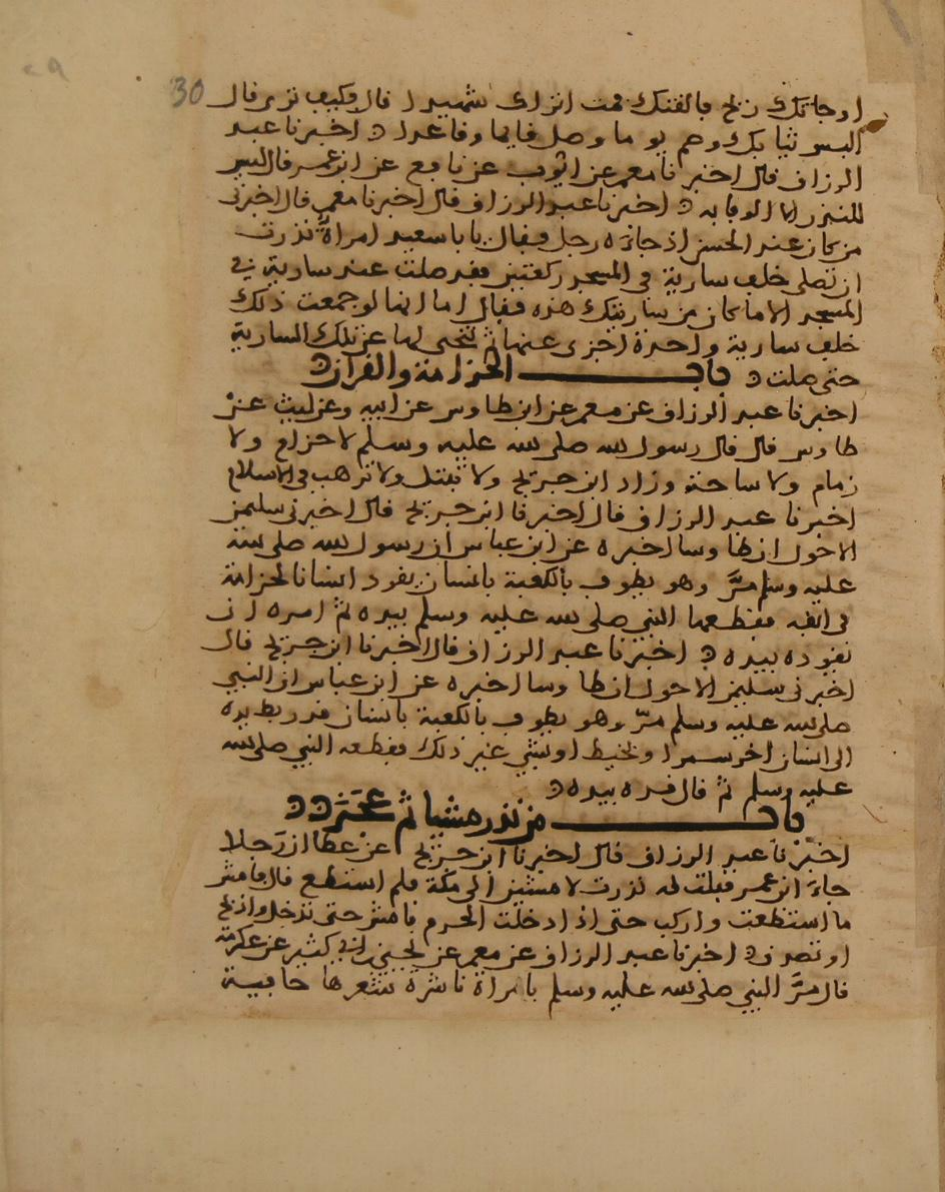 30
او جاتك ريح فالقتك فمت اتراك شهيدا قال وكيف تري قال
البس ثيابك وصم يوما وصل قايما وقاعدا اخبرنا عبد
الرزاق قال اخبرنا معمر عن ايوب عن نافع عن ابن عمر قال ليس
للنذر الا الوفا به اخبرنا عبد الرزاق قال اخبرنا معمر قال اخبرني
من كان عند الحسن اذ جاه رجل فقال يا با سعيد امراة نذرت
ان تصلي خلف سارية في المسجد ركعتين فقد صلت عند سارية في
المسجد الا ما كان من ساريتك هذه فقال اما انها لو جمعت ذلك
خلف سارية واحدة اجزى عنها ثم تنحى لها عن تلك السارية
حتى صلت باب الخزامة والقران
اخبرنا عبد الرزاق عن معمر عن ابن طاوس عن ابيه وعن ليث عن
طاوس قال قال رسول الله صلى الله عليه وسلم لا خزام ولا
زمام ولا سياحة وزاد ابن جريج ولا تبتل ولا ترهب في الاسلام
اخبرنا عبد الرزاق قال اخبرنا ابن جريج قال اخبرني سليمن
الاحول ان طاوسا اخبره عن ابن عباس ان رسول الله صلى الله
عليه وسلم مرّ وهو يطوف بالكعبة بانسان يقود انسانا بخزامة
في انفه فقطعها النبي صلى الله عليه وسلم بيده ثم امره ان
يقوده بيده اخبرنا عبد الرزاق قال اخبرنا ابن جريج قال
اخبرني سليمن الاحول ان طاوسا اخبره عن ابن عباس ان النبي
صلى الله عليه وسلم مرّ وهو يطوف بالكعبة بانسان قد ربط يده
الى انسان اخر بسير او بخيط او بشي غير ذلك فقطعه النبي صلى الله
عليه وسلم ثم قال قده بيده
باب من نذر مشيا ثم عجز
اخبرنا عبد الرزاق قال اخبرنا ابن جريج عن عطا ان رجلا
جاء ابن عمر فقال له نذرت لامشين الى مكة فلم استطع قال فامش
ما استطعت واركب حتى اذا دخلت الحرم فامش حتى تدخل واذبح
او تصدق اخبرنا عبد الرزاق عن معمر عن يحيى بن ابي كثير عن عكرمة
قال مرّ النبي صلى الله عليه وسلم بامراة ناشرة شعرها حافية